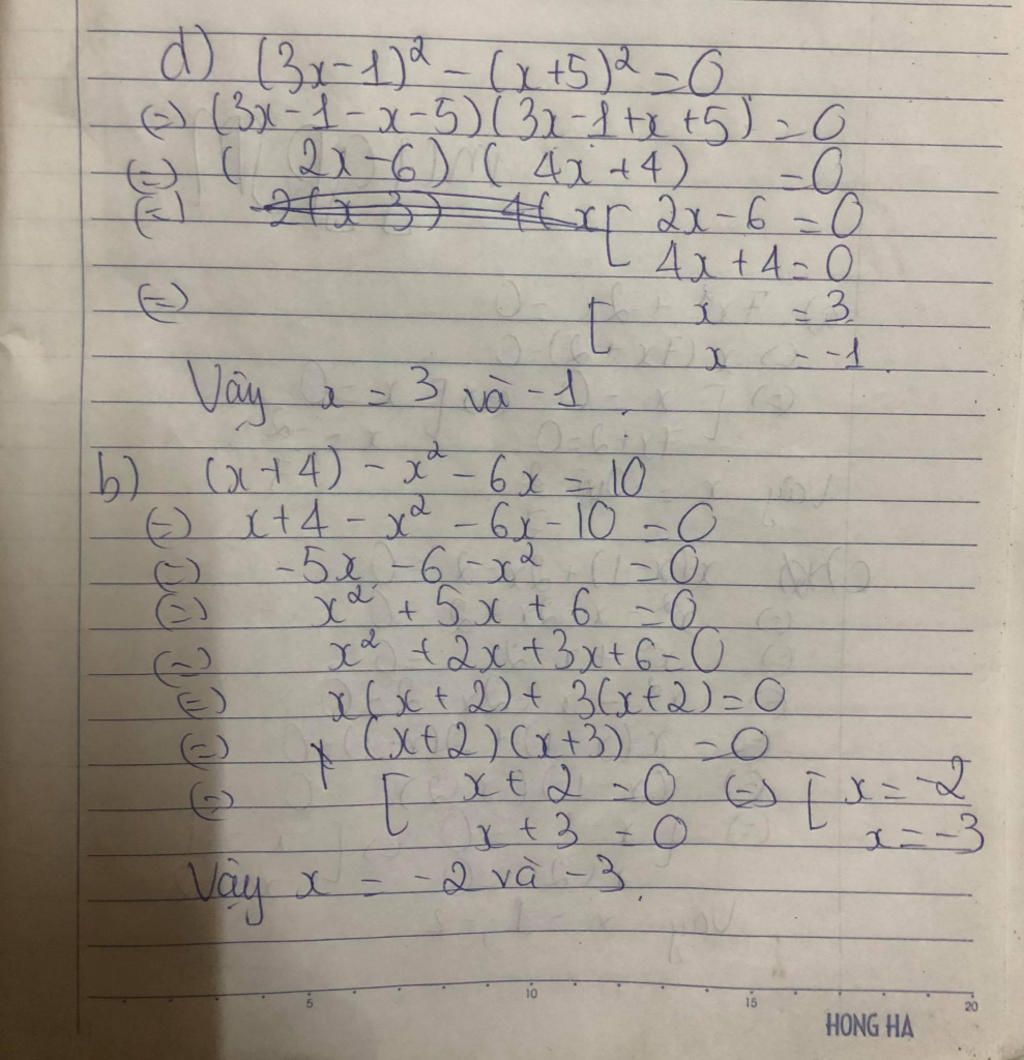 d) (3x-1)² - (x+5)² = 0
(=) (3x-1-x-5)(3x-1+x+5) = 0
(=) ( 2x-6) ( 4x+4) = 0
(=) 2(x-3) 4(x [ 2x-6 = 0
4x+4 = 0
(=) [ x = 3
x = -1.
Vậy x = 3 và -1.
b) (x+4) - x² - 6x = 10
(=) x+4 - x² - 6x - 10 = 0
(=) -5x - 6 - x² = 0
(=) x² + 5x + 6 = 0
(=) x² + 2x + 3x + 6 = 0
(=) x(x+2) + 3(x+2) = 0
(=) x (x+2)(x+3) = 0
(=) [ x+2 = 0 (=) [ x = -2
x+3 = 0 x = -3
Vậy x = -2 và -3.
5 10 15 20
HONG HA